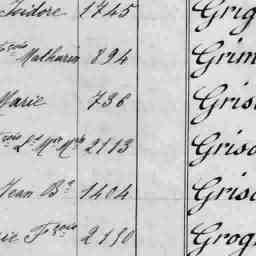 Isidore 1745 Grig
Mathurin 894 Grim
Marie 736 Gris
2113 Griso
Jean Bte 1404 Griso
2150 Grog